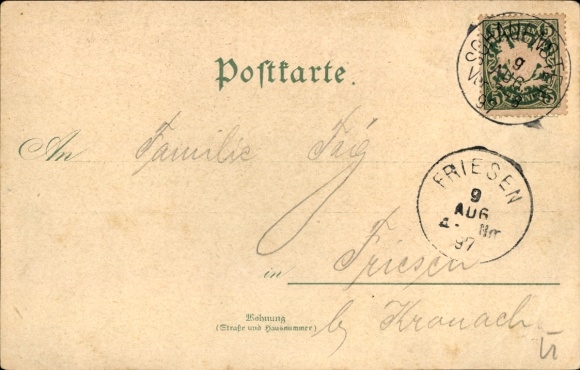 Postkarte.
An Familie
FRIESEN
9
AUG
4- Nm
97
in Friesen
Wohnung
(Straße und Hausnummer)
b/ Kronach